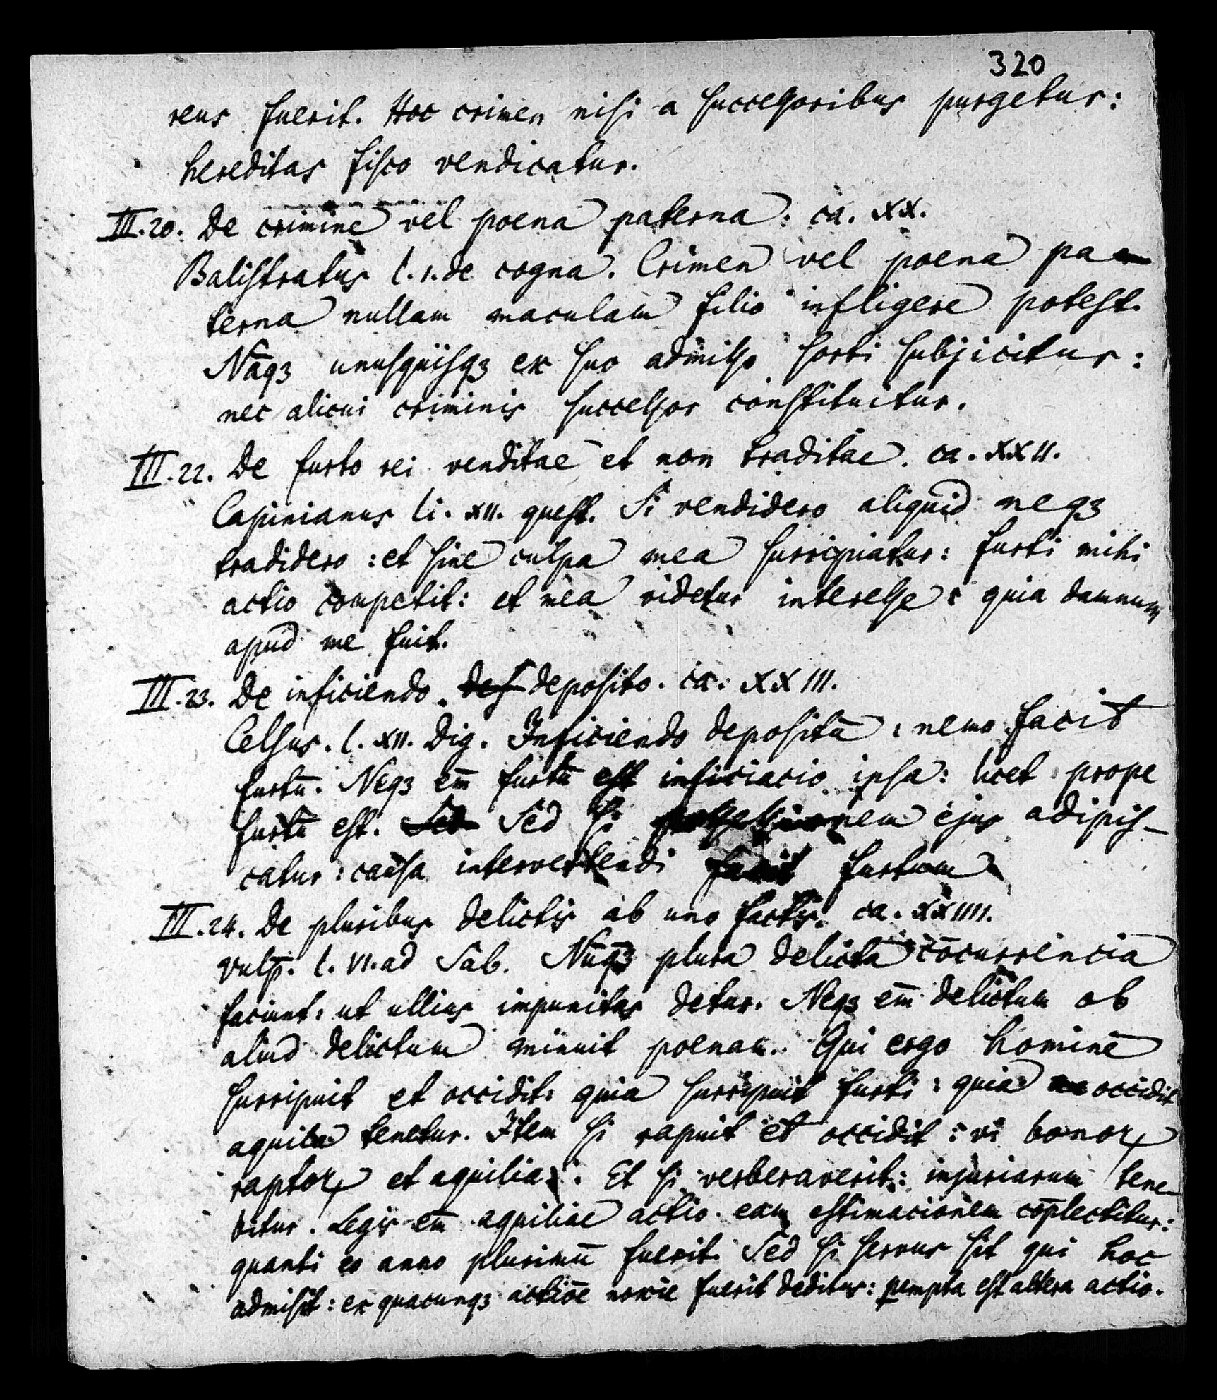 320
reus fuerit. Hoc crimen nisi a successoribus purgetur:
hereditas fisco vendicatur.
III.20. De crimine vel poena paterna: ca. XX.
Balistratus l. 1. de cogna. Crimen vel poena pa-
terna nullam maculam filio infligere potest.
Nāqꝫ unusquisqꝫ ex suo admisso sorti subjicitur:
nec alicui criminis successor constituitur.
III.22. De furto rei venditae et non traditae. ca. XXII.
Capinianus li. XII. quest. Si vendidero aliquid neqꝫ
tradidero: et sine culpa mea surripiatur: furti mihi
actio competit: et mea videtur interesse: quia damnum
apud me fuit.
III.23. De inficiendo deposito. ca. XXIII.
Celsus. l. XII. Dig. Inficiendo depositū: nemo facit
furtū. Neqꝫ em̄ furtū est inficiacio ipsa: licet prope
furtū est. Sed si possessionem ejus adipis-
catur: causa intervertendi facit furtum
III.24. De pluribus delictis ab uno factis. ca. XXIIII.
Vulp̄. l. VI. ad Sab. Nūqꝫ plura delicta cōcurrencia
faciunt: ut ullius impunitas detur. Neqꝫ em̄ delictum ob
aliud delictum minuit poenam. Qui ergo hominē
surripuit et occidit: quia surripuit furti: quia occidit
aquilia tenetur. Item si rapuit et occidit: vi bonoꝝ
raptoꝝ et aquilia. Et si verberaverit: injuriarum tene-
bitur. Legis em̄ aquiliae actio eam estimacionem cōplectitur:
quanti eo anno plurimū fuerit. Sed si servus sit qui hoc
admisit: ex quacunqꝫ actiōe noxie fuerit deditus: pempta est altera actio.